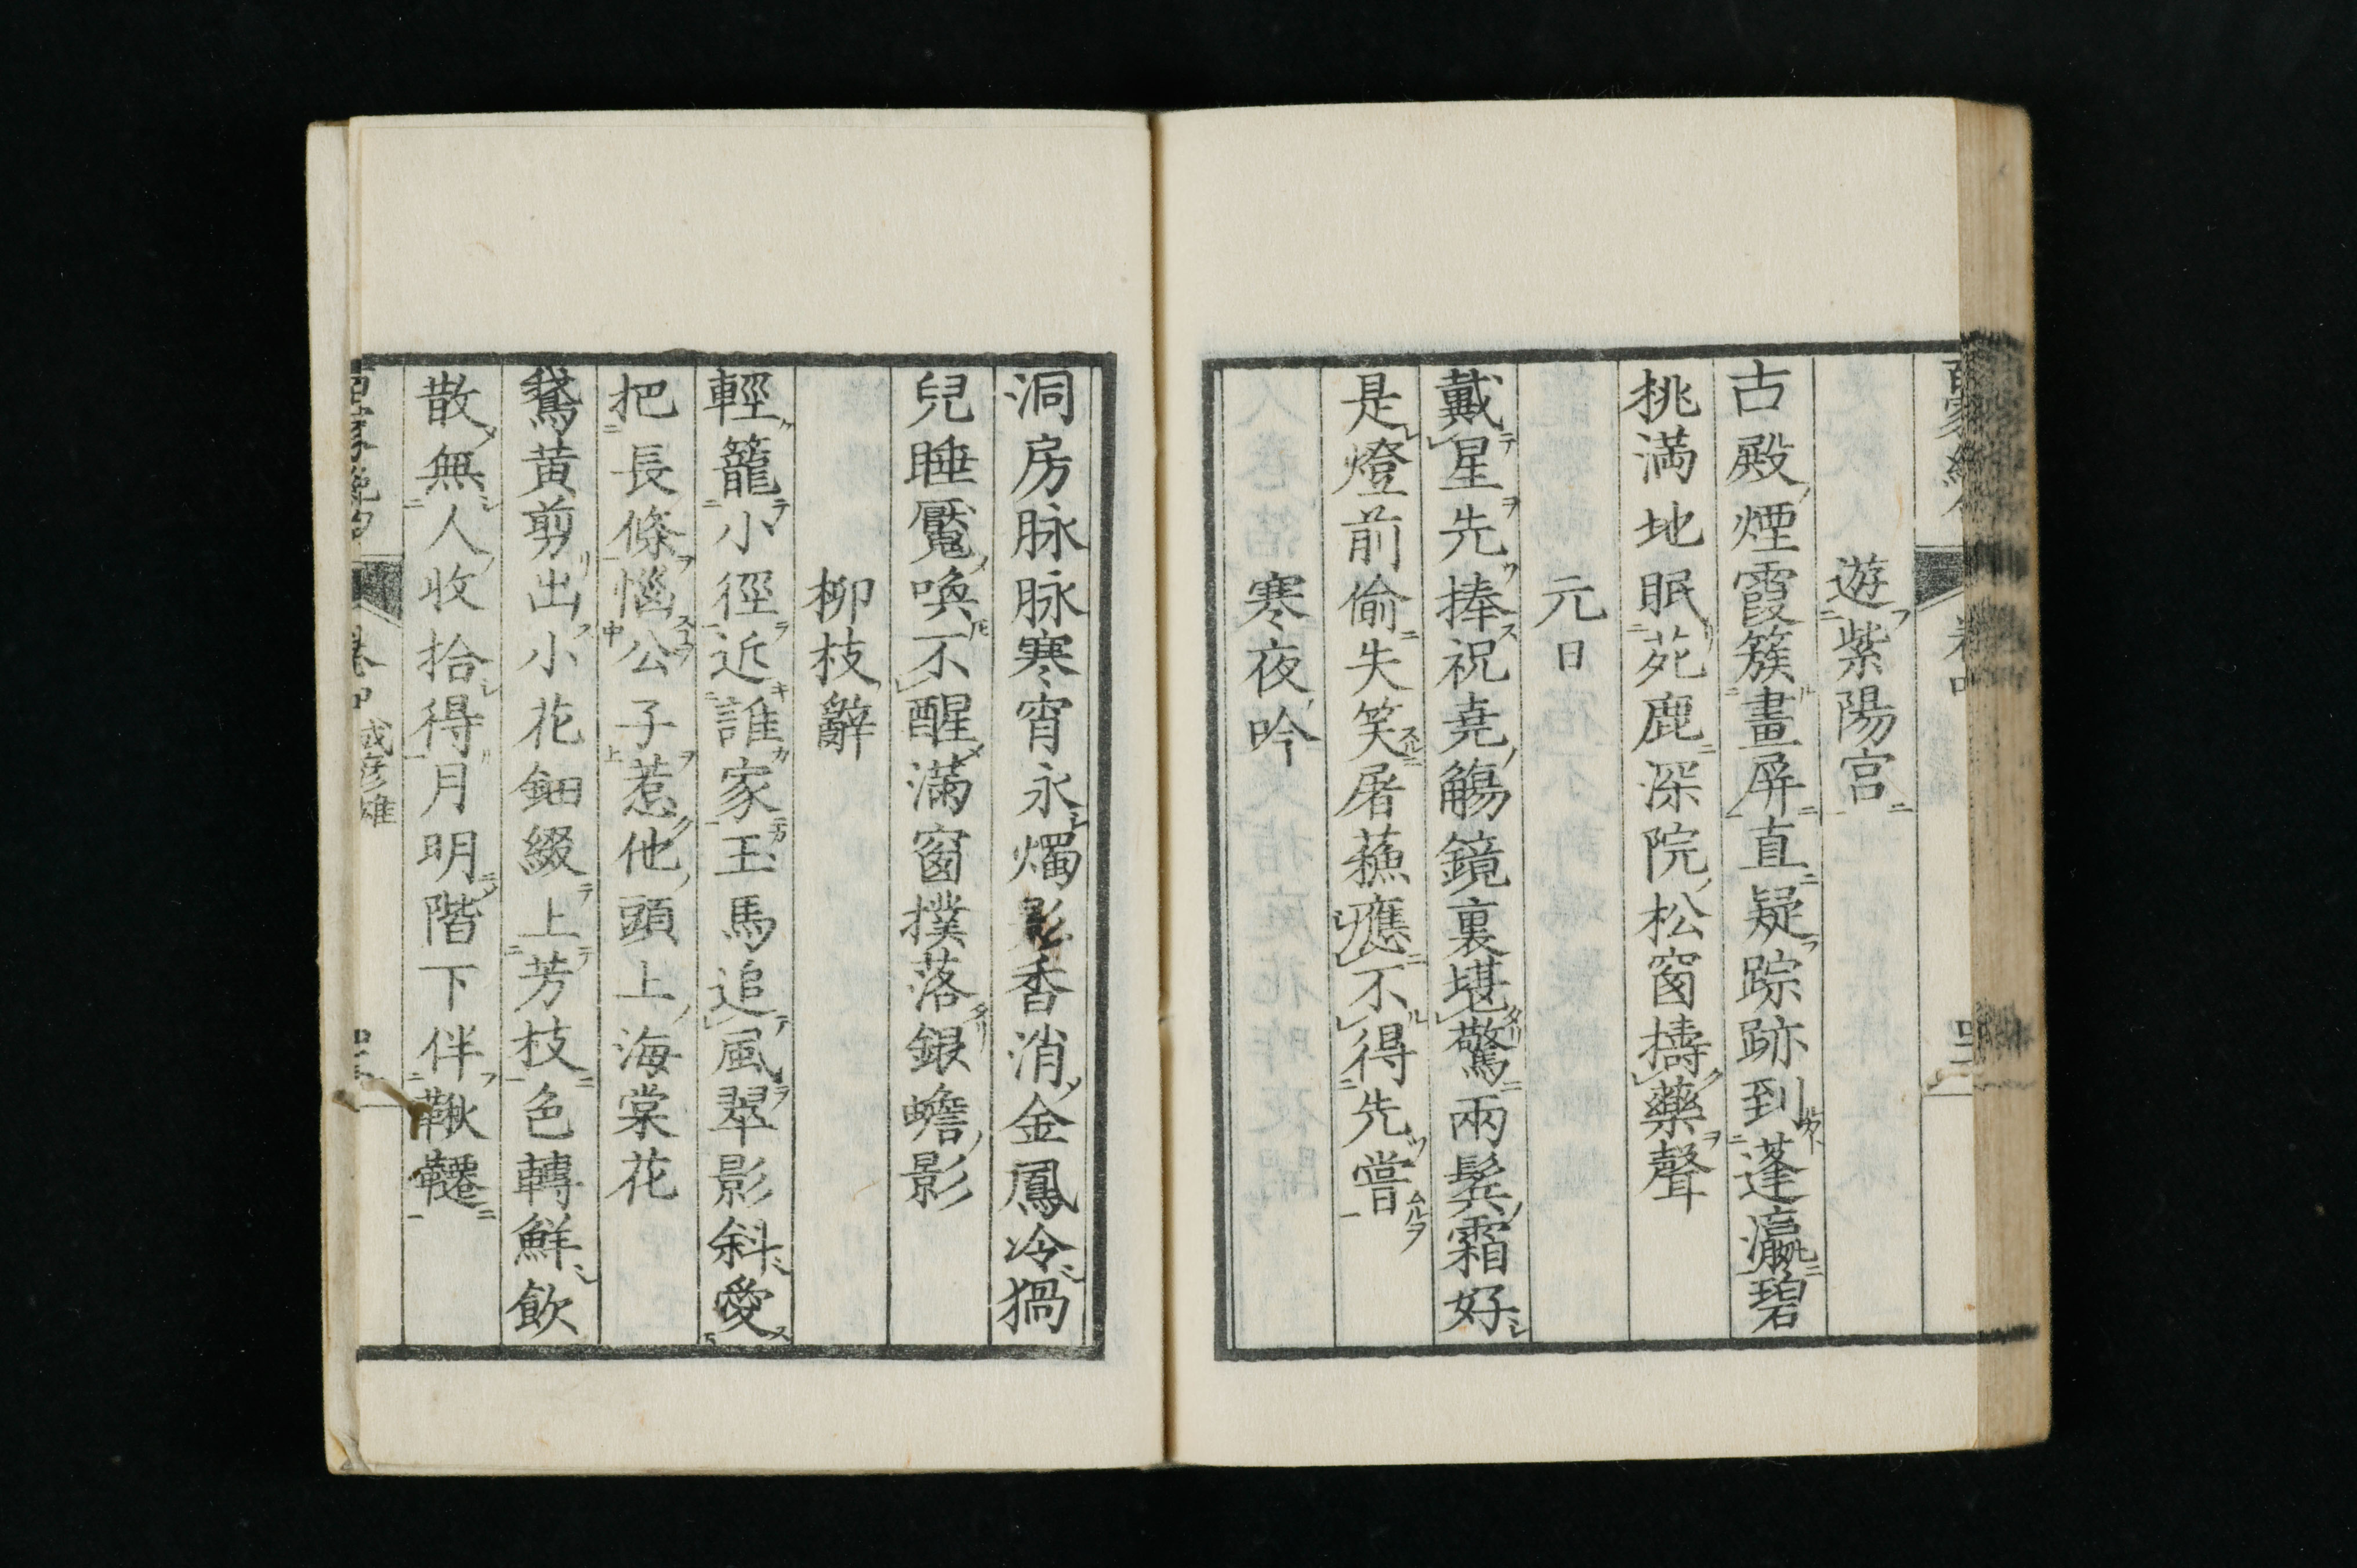 遊紫陽宮
古殿煙霞簇畫屏直疑踪跡到蓬瀛碧
桃満地眠苑鹿深院松窗擣藥聲
元日
戴星先捧祝堯觴鏡裏堪驚兩鬢霜好
是燈前偷失笑屠蘓應不得先嘗
寒夜吟
洞房脉脉寒宵永燭影香消金鳳冷猧
兒睡魘喚不醒滿窗撲落銀蟾影
柳枝辭
輕籠小徑近誰家玉馬追風翠影斜愛
把長條惱公子惹他頭上海棠花
鵞黃剪出小花鈿綴上芳枝色轉鮮飲
散無人收拾得月明階下伴鞦韆
卷中 成彦雄